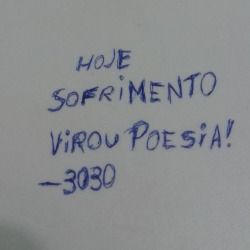 HOJE
SOFRIMENTO
VIROU POESIA!
-3030